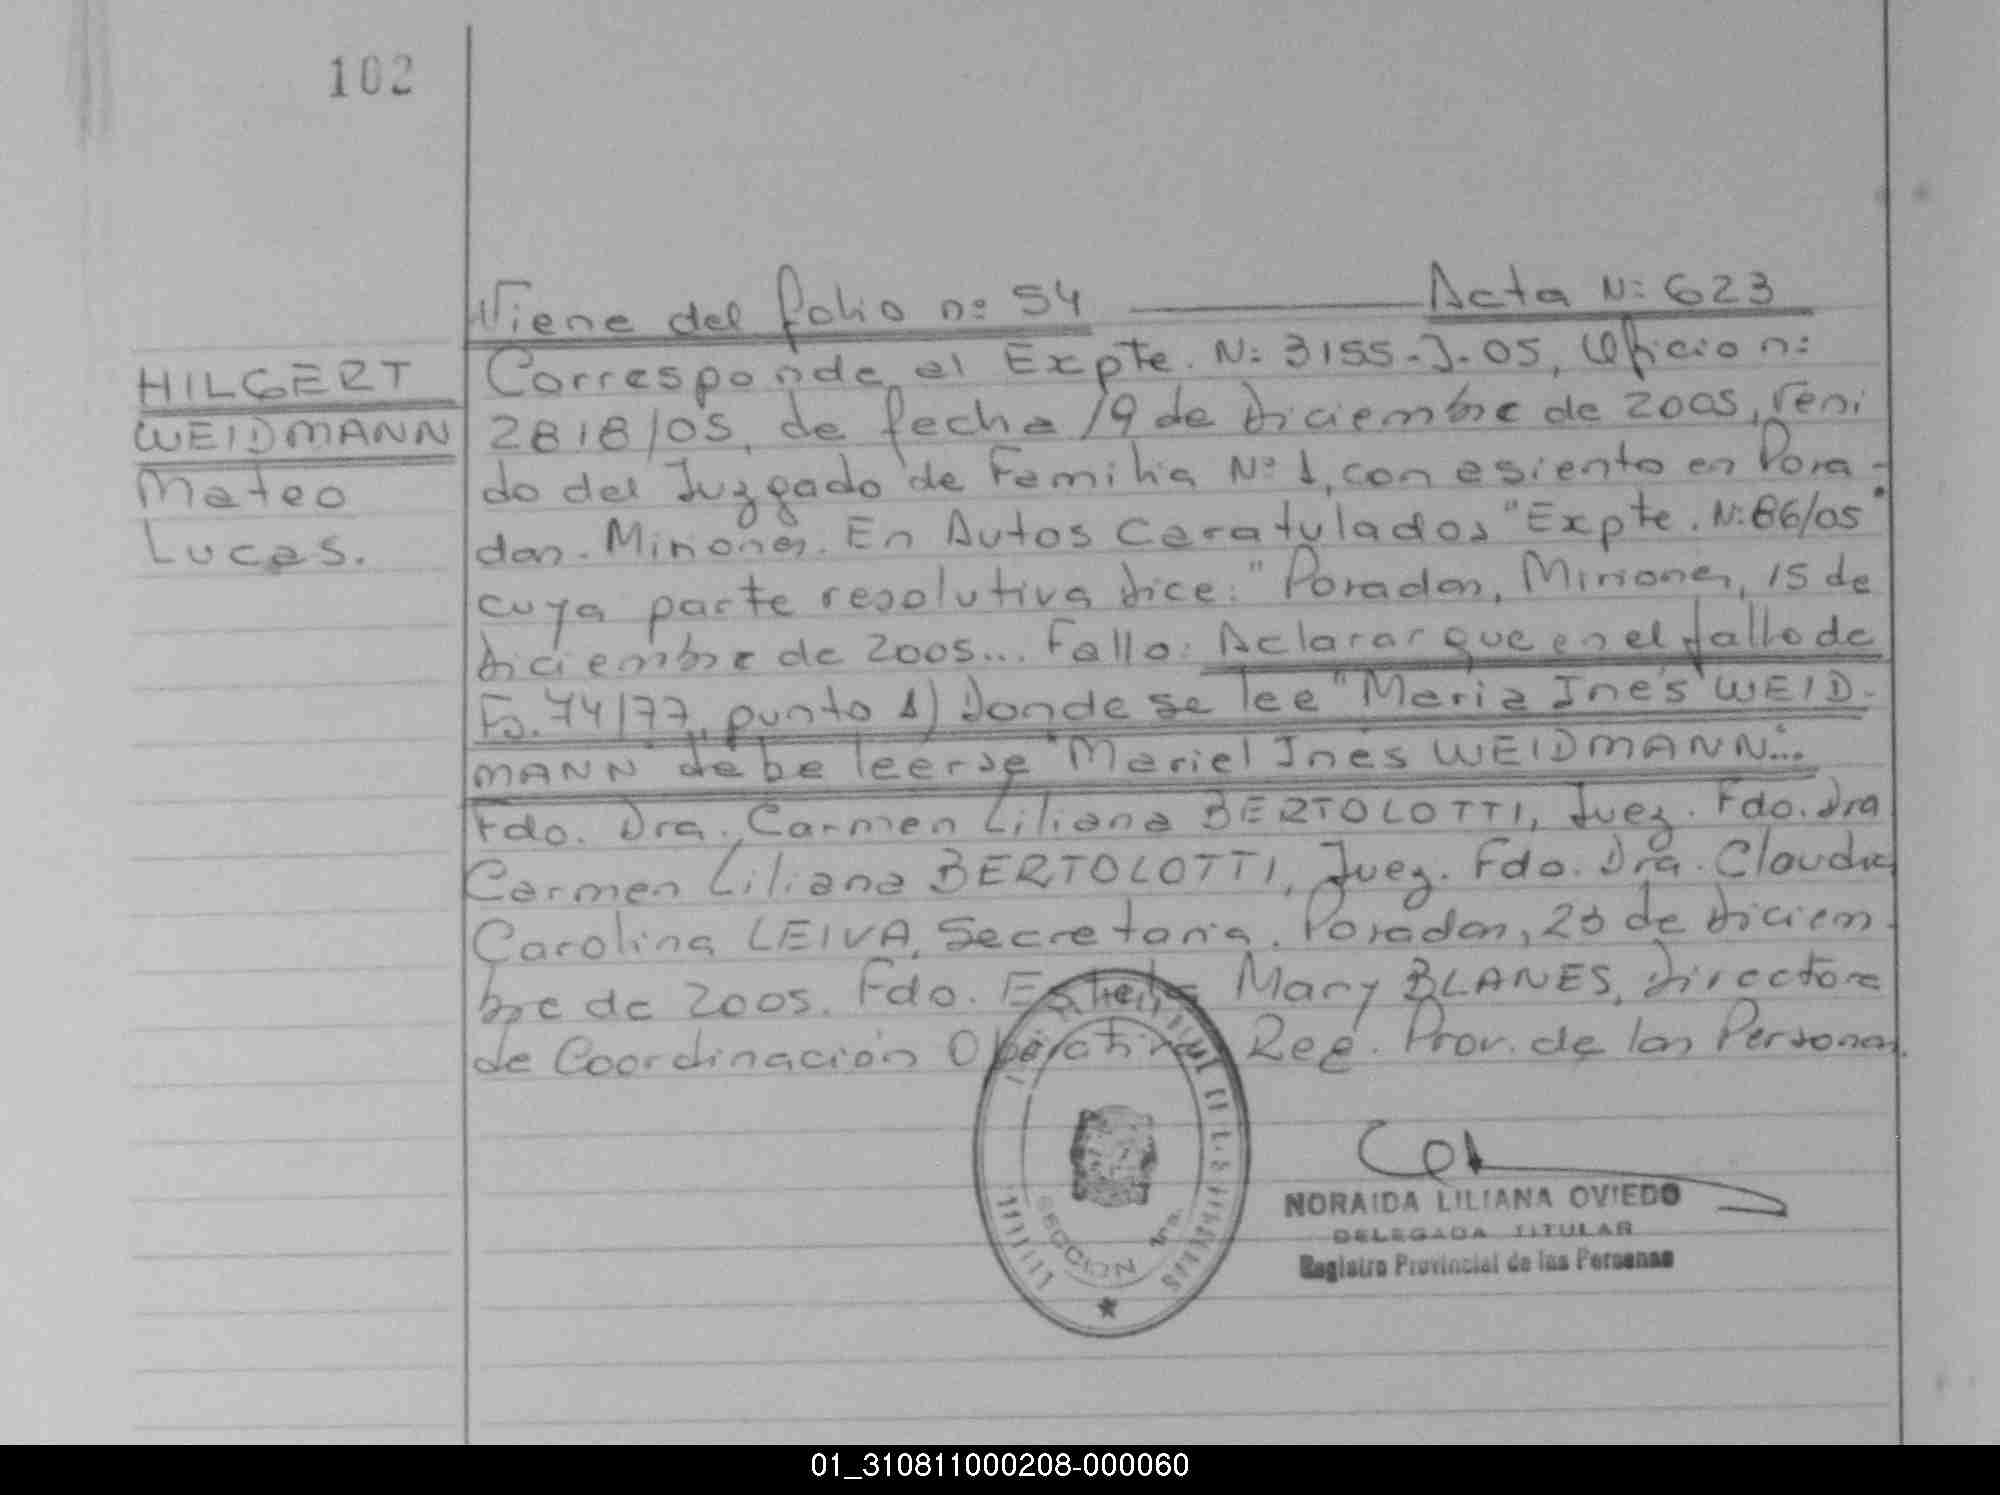 102
Viene del folio nº 54 Acta Nº 623
HILGERT
WEIDMANN
Mateo
Lucas.
Corresponde al Expte. Nº 3155-J-05, Oficio nº
2818/05, de fecha 19 de diciembre de 2005, veni
do del Juzgado de Familia Nº 1, con asiento en Posa-
das. Misiones. En Autos Caratulados "Expte. Nº 86/05"
cuya parte resolutiva dice: "Posadas, Misiones, 15 de
diciembre de 2005... Fallo: Aclarar que en el fallo de
Fs. 74/77, punto 1) Donde se lee "Maria Inés WEID-
MANN" debe leerse "Mariel Inés WEIDMANN"...
Fdo. Dra. Carmen Liliana BERTOLOTTI, Juez. Fdo. Dra
Carmen Liliana BERTOLOTTI, Juez. Fdo. Dra. Claudia
Carolina LEIVA, Secretaria. Posadas, 23 de diciem-
bre de 2005. Fdo. Estela Mary BLANES, Directora
de Coordinación Operativa Reg. Prov. de las Personas.
SECCION 1ra.
NORAIDA LILIANA OVIEDO
DELEGADA TITULAR
Registro Provincial de las Personas
01_310811000208-000060